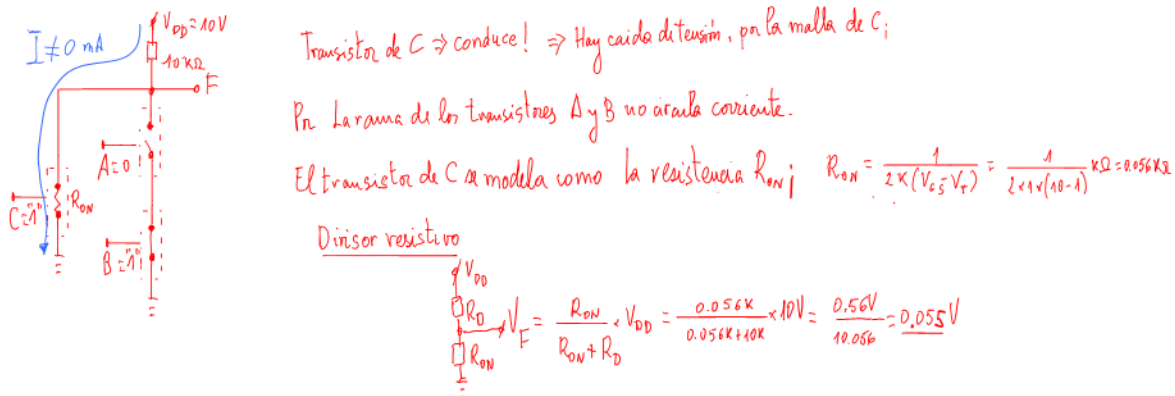 V_DD=10V
I≠0 mA
10KΩ
F
A=0
C="1"
R_ON
B="1"
Transistor de C ⇒ conduce! ⇒ Hay caida de tensión, por la malla de C;
Por La rama de los transistores A y B no circula corriente.
El transistor de C se modela como la resistencia R_ON; R_ON = 1 / 2K(V_GS-V_T) = 1 / 2×1×(10-1) KΩ = 0.056KΩ
Divisor resistivo
V_DD
R_D
V_F = R_ON / R_ON+R_D × V_DD = 0.056K / 0.056K+10K × 10V = 0.56V / 10.056 = 0.055V
R_ON